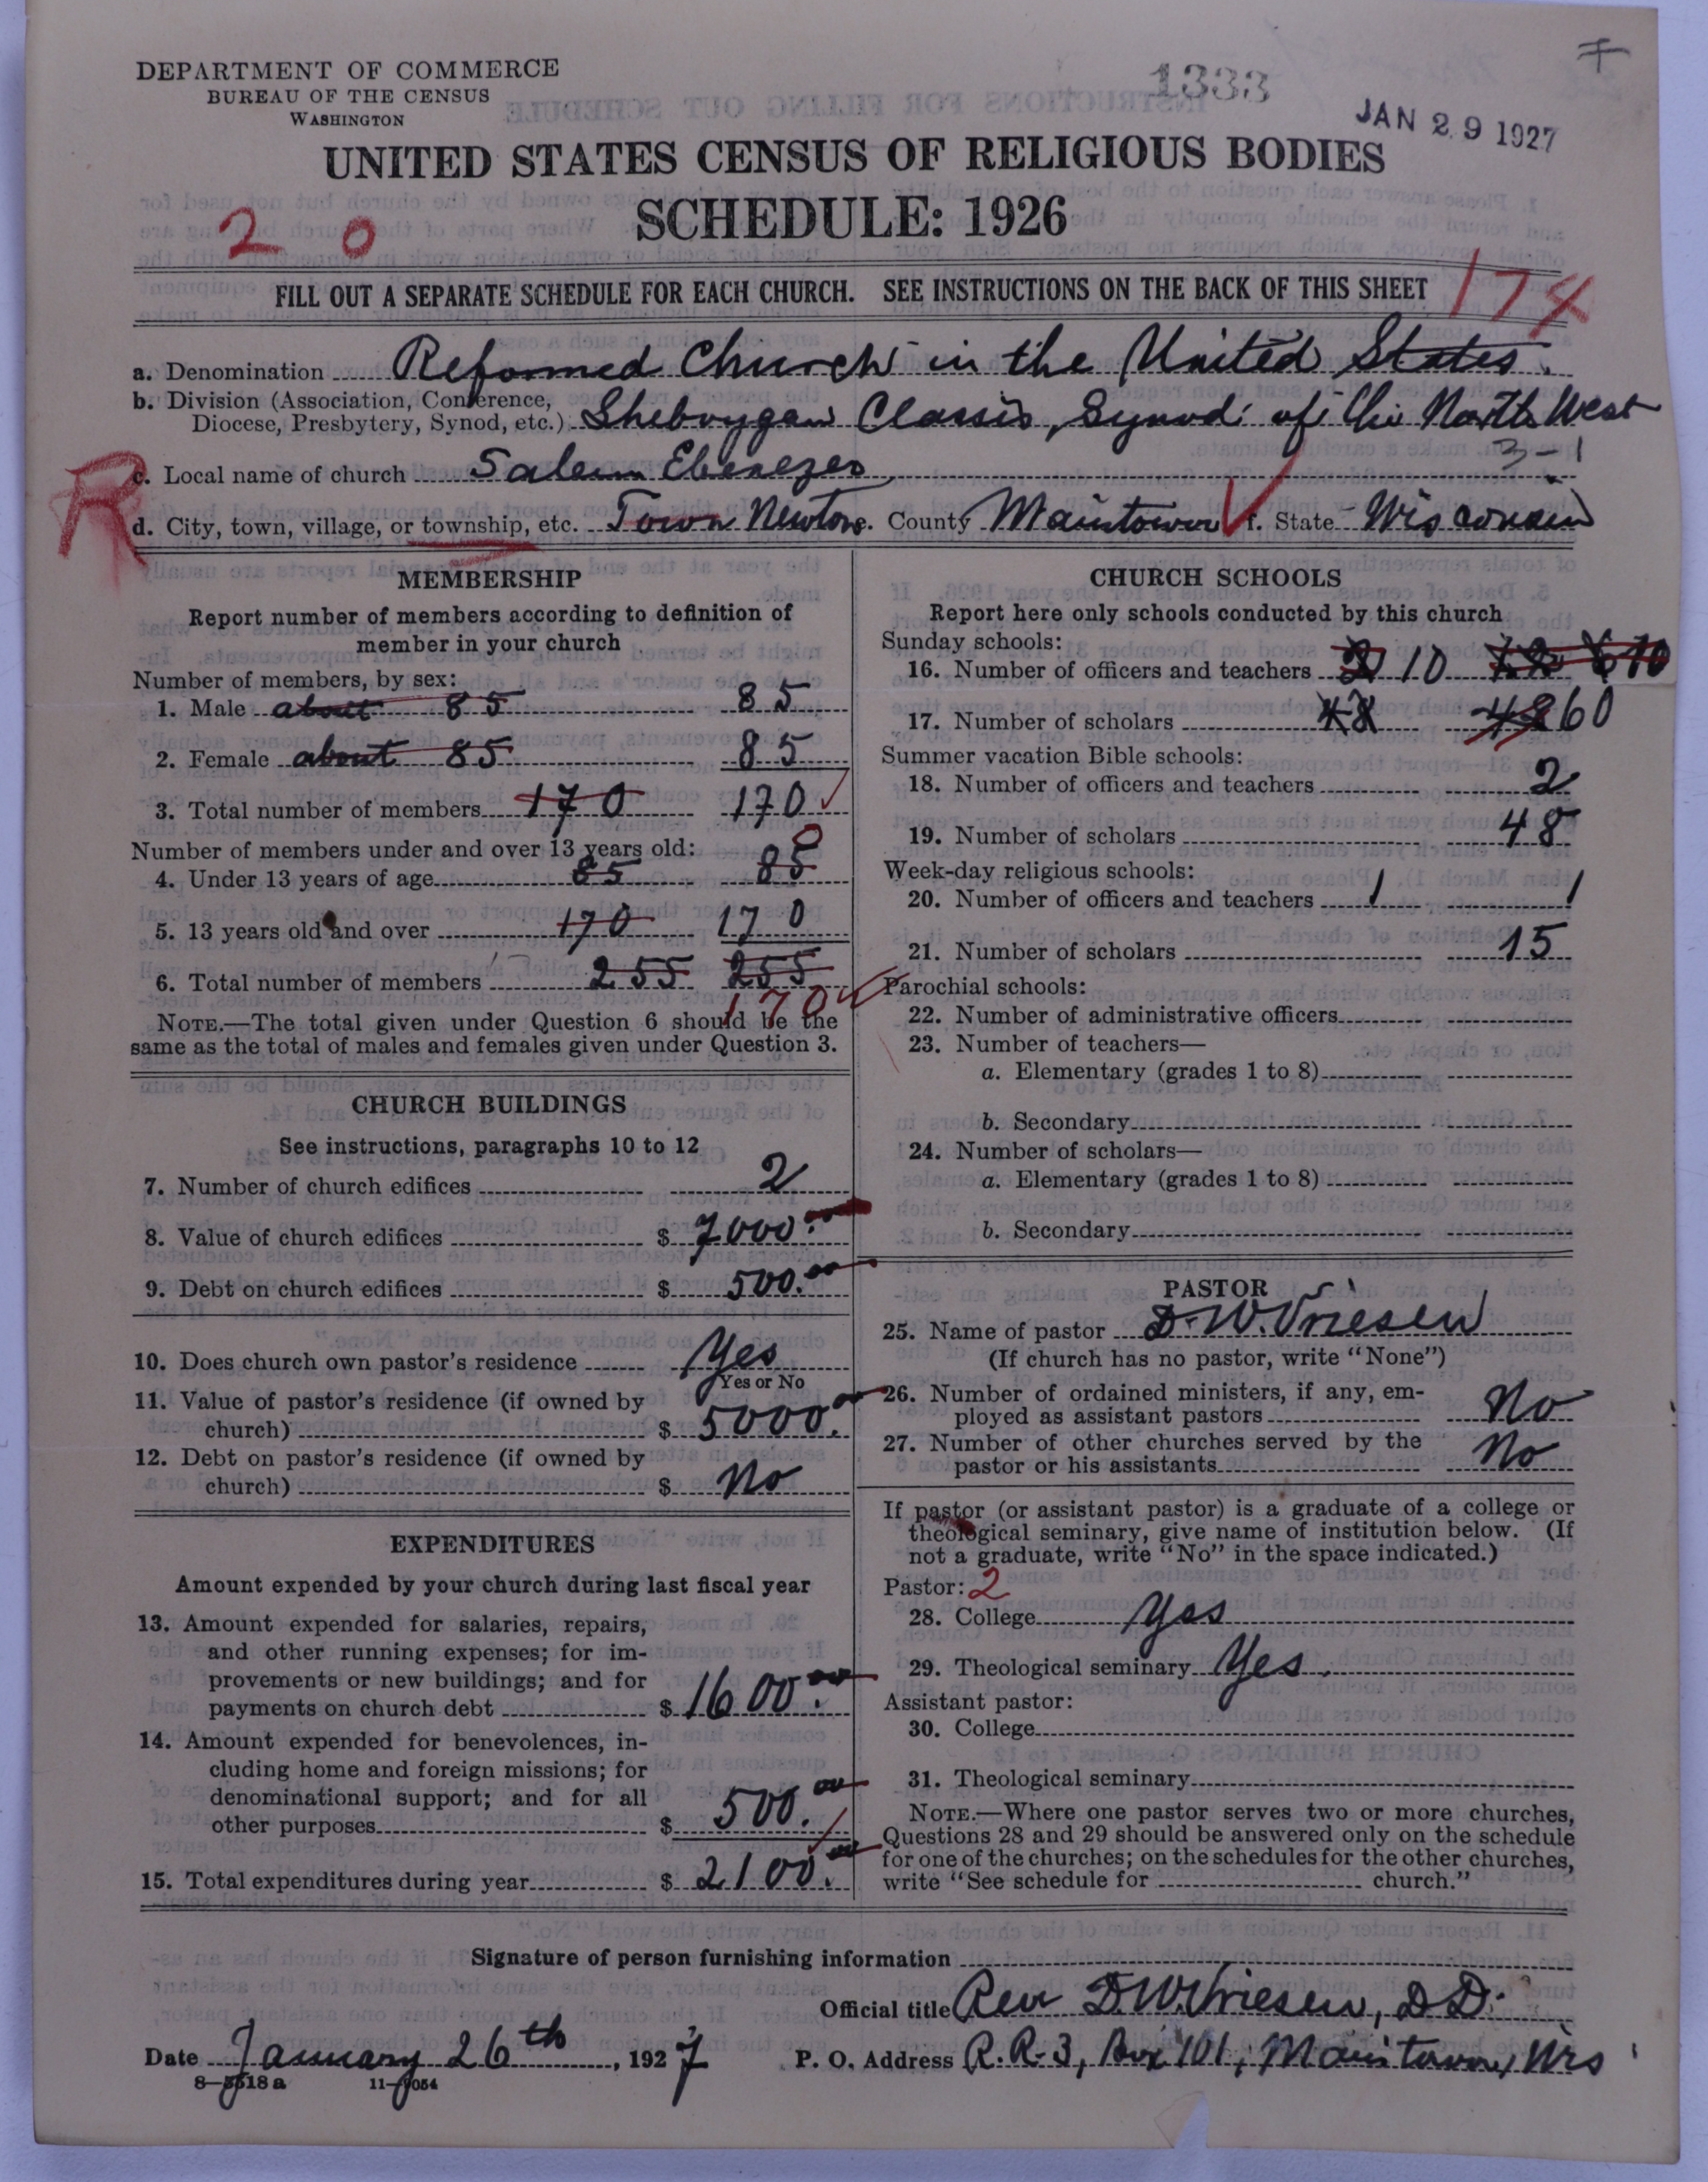 DEPARTMENT OF COMMERCE
BUREAU OF THE CENSUS
WASHINGTON
1333
JAN 29 1927
UNITED STATES CENSUS OF RELIGIOUS BODIES
SCHEDULE: 1926
2 0
FILL OUT A SEPARATE SCHEDULE FOR EACH CHURCH. SEE INSTRUCTIONS ON THE BACK OF THIS SHEET
174
a. Denomination Reformed Church in the United States.
b. Division (Association, Conference, Diocese, Presbytery, Synod, etc.) Sheboygan Classis, Synod of the North West
3-1
R
c. Local name of church Salem Ebenezer
d. City, town, village, or township, etc. Town Newton e. County Manitowoc f. State Wisconsin
MEMBERSHIP
Report number of members according to definition of
member in your church
Number of members, by sex:
1. Male about 85 85
2. Female about 85 85
3. Total number of members 170 170
Number of members under and over 13 years old:
4. Under 13 years of age 85 85 0
5. 13 years old and over 170 170
6. Total number of members 255 255
170
NOTE.—The total given under Question 6 should be the
same as the total of males and females given under Question 3.
CHURCH BUILDINGS
See instructions, paragraphs 10 to 12
7. Number of church edifices 2
8. Value of church edifices $ 7000.00
9. Debt on church edifices $ 500.00
10. Does church own pastor's residence Yes
Yes or No
11. Value of pastor's residence (if owned by
church) $ 5000.00
12. Debt on pastor's residence (if owned by
church) $ No
EXPENDITURES
Amount expended by your church during last fiscal year
13. Amount expended for salaries, repairs,
and other running expenses; for im-
provements or new buildings; and for
payments on church debt $ 1600.00
14. Amount expended for benevolences, in-
cluding home and foreign missions; for
denominational support; and for all
other purposes $ 500.00
15. Total expenditures during year $ 2100.00
CHURCH SCHOOLS
Report here only schools conducted by this church
Sunday schools:
16. Number of officers and teachers 2 10 10
17. Number of scholars 48 48 60
Summer vacation Bible schools:
18. Number of officers and teachers 2
19. Number of scholars 48
Week-day religious schools:
20. Number of officers and teachers 1 1
21. Number of scholars 15
Parochial schools:
22. Number of administrative officers
23. Number of teachers—
a. Elementary (grades 1 to 8)
b. Secondary
24. Number of scholars—
a. Elementary (grades 1 to 8)
b. Secondary
PASTOR
25. Name of pastor D. W. Vriesen
(If church has no pastor, write "None")
26. Number of ordained ministers, if any, em-
ployed as assistant pastors No
27. Number of other churches served by the
pastor or his assistants No
If pastor (or assistant pastor) is a graduate of a college or
theological seminary, give name of institution below. (If
not a graduate, write "No" in the space indicated.)
Pastor: 2
28. College Yes
29. Theological seminary Yes.
Assistant pastor:
30. College
31. Theological seminary
NOTE.—Where one pastor serves two or more churches,
Questions 28 and 29 should be answered only on the schedule
for one of the churches; on the schedules for the other churches,
write "See schedule for church."
Signature of person furnishing information
Official title Rev D. W. Vriesen, D.D.
Date January 26th, 1927 P. O. Address R. R. 3, Box 101, Manitowoc, Wis
8—5518a 11—9054